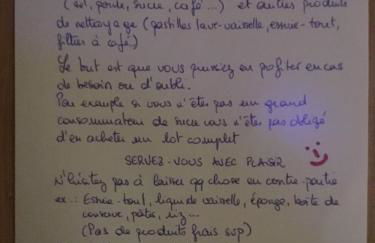 (sel, poivre, sucre, café...) et autres produits
de nettoyage (pastilles lave-vaisselle, essuie-tout,
filtres à café)
Le but est que vous puissiez en profiter en cas
de besoin ou d'oubli.
Par exemple si vous n'êtes pas un grand
consommateur de sucre vous n'êtes pas obligé
d'en acheter un lot complet
SERVEZ-VOUS AVEC PLAISIR
N'hésitez pas à laisser qq chose en contre-partie
ex.: Essuie-tout, liquide vaisselle, éponge, boîte de
conserve, pâtes, riz...
(Pas de produits frais svp)